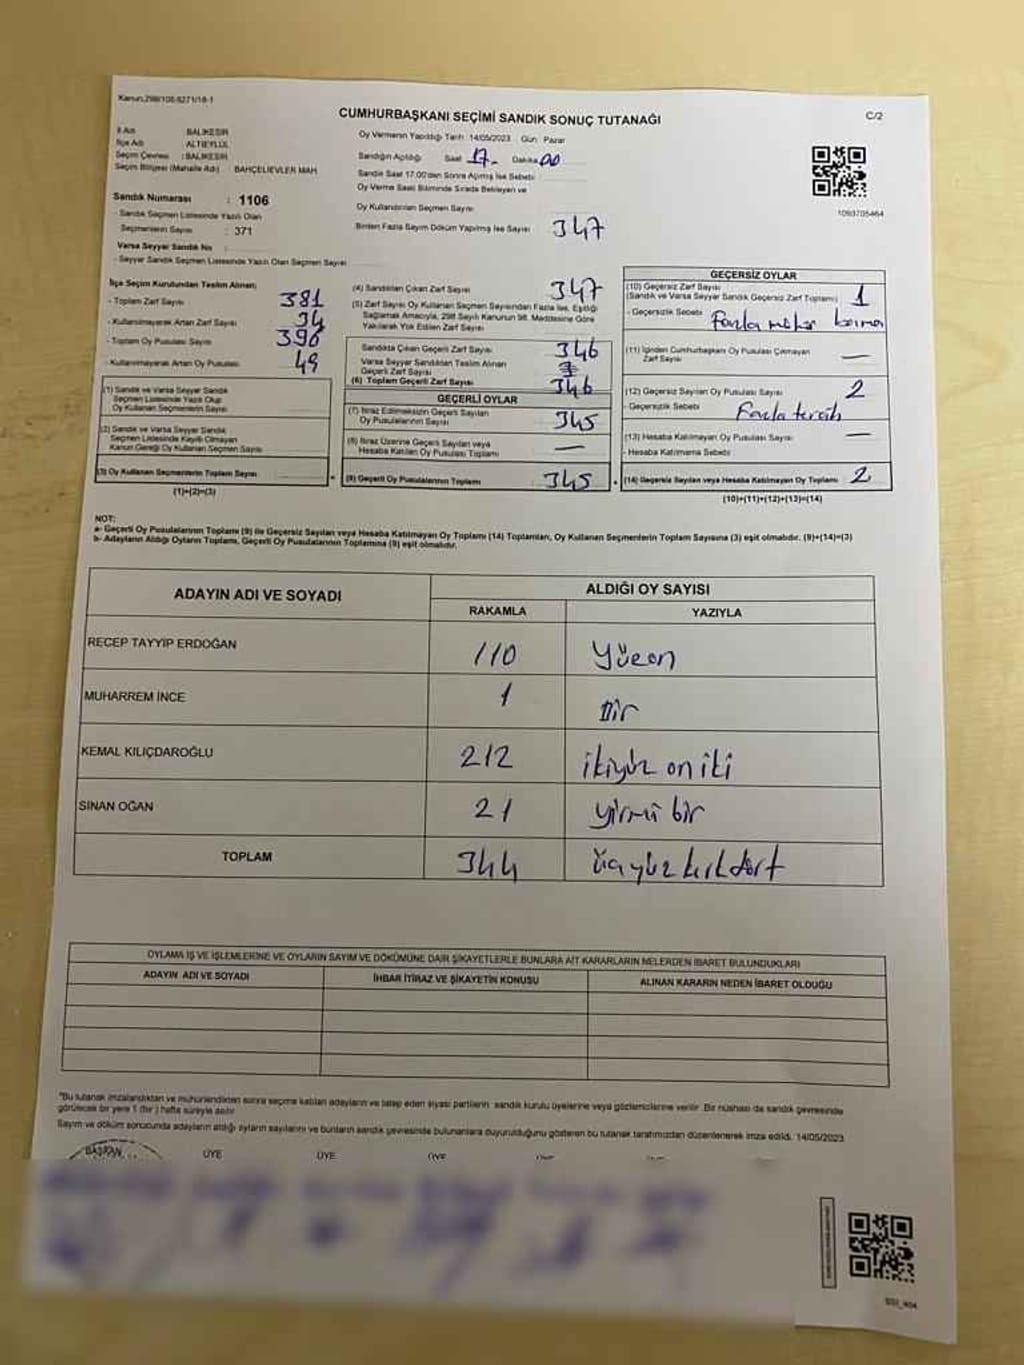 Kanun,298/105-6271/18-1
CUMHURBAŞKANI SEÇİMİ SANDIK SONUÇ TUTANAĞI
C/2
İl Adı : BALIKESİR
İlçe Adı : ALTIEYLÜL
Seçim Çevresi : BALIKESİR
Seçim Bölgesi (Mahalle Adı) : BAHÇELİEVLER MAH
Sandık Numarası : 1106
- Sandık Seçmen Listesinde Yazılı Olan
Seçmenlerin Sayısı : 371
Varsa Seyyar Sandık No :
- Seyyar Sandık Seçmen Listesinde Yazılı Olan Seçmen Sayısı
Oy Vermenin Yapıldığı Tarih 14/05/2023 Gün Pazar
Sandığın Açıldığı Saat 17- Dakika 00
Sandık Saat 17:00'den Sonra Açılmış İse Sebebi
Oy Verme Saati Bitiminde Sırada Bekleyen ve
Oy Kullandırılan Seçmen Sayısı
Birden Fazla Sayım Döküm Yapılmış İse Sayısı 347
1093705464
İlçe Seçim Kurulundan Teslim Alınan;
- Toplam Zarf Sayısı 381
- Kullanılmayarak Artan Zarf Sayısı 34
- Toplam Oy Pusulası Sayısı 396
- Kullanılmayarak Artan Oy Pusulası 49
(1) Sandık ve Varsa Seyyar Sandık
Seçmen Listesinde Yazılı Olup
Oy Kullanan Seçmenlerin Sayısı
(2) Sandık ve Varsa Seyyar Sandık
Seçmen Listesinde Kayıtlı Olmayan
Kanun Gereği Oy Kullanan Seçmen Sayısı
(3) Oy Kullanan Seçmenlerin Toplam Sayısı
(1)+(2)=(3)
(4) Sandıktan Çıkan Zarf Sayısı 347
(5) Zarf Sayısı Oy Kullanan Seçmen Sayısından Fazla İse, Eşitliği
Sağlamak Amacıyla, 298 Sayılı Kanunun 98. Maddesine Göre
Yakılarak Yok Edilen Zarf Sayısı
Sandıkta Çıkan Geçerli Zarf Sayısı 346
Varsa Seyyar Sandıktan Teslim Alınan
Geçerli Zarf Sayısı
(6) Toplam Geçerli Zarf Sayısı 346
GEÇERLİ OYLAR
(7) İtiraz Edilmeksizin Geçerli Sayılan
Oy Pusulalarının Sayısı 345
(8) İtiraz Üzerine Geçerli Sayılan veya
Hesaba Katılan Oy Pusulası Toplamı —
(9) Geçerli Oy Pusulalarının Toplamı 345
GEÇERSİZ OYLAR
(10) Geçersiz Zarf Sayısı
(Sandık ve Varsa Seyyar Sandık Geçersiz Zarf Toplamı) 1
- Geçersizlik Sebebi Fazla mühür basma
(11) İçinden Cumhurbaşkanı Oy Pusulası Çıkmayan
Zarf Sayısı —
(12) Geçersiz Sayılan Oy Pusulası Sayısı 2
- Geçersizlik Sebebi Fazla tercih
(13) Hesaba Katılmayan Oy Pusulası Sayısı —
- Hesaba Katılmama Sebebi
(14) Geçersiz Sayılan veya Hesaba Katılmayan Oy Toplamı 2
(10)+(11)+(12)+(13)=(14)
NOT:
a- Geçerli Oy Pusulalarının Toplamı (9) ile Geçersiz Sayılan veya Hesaba Katılmayan Oy Toplamı (14) Toplamları, Oy Kullanan Seçmenlerin Toplam Sayısına (3) eşit olmalıdır. (9)+(14)=(3)
b- Adayların Aldığı Oyların Toplamı, Geçerli Oy Pusulalarının Toplamına (9) eşit olmalıdır.
ADAYIN ADI VE SOYADI
ALDIĞI OY SAYISI
RAKAMLA YAZIYLA
RECEP TAYYİP ERDOĞAN 110 yüzon
MUHARREM İNCE 1 Bir
KEMAL KILIÇDAROĞLU 212 ikiyüz on iki
SİNAN OĞAN 21 yirmi bir
TOPLAM 344 üçyüz kırk dört
OYLAMA İŞ VE İŞLEMLERİNE VE OYLARIN SAYIM VE DÖKÜMÜNE DAİR ŞİKAYETLERLE BUNLARA AİT KARARLARIN NELERDEN İBARET BULUNDUKLARI
ADAYIN ADI VE SOYADI İHBAR İTİRAZ VE ŞİKAYETİN KONUSU ALINAN KARARIN NEDEN İBARET OLDUĞU
"Bu tutanak imzalandıktan ve mühürlendikten sonra seçime katılan adayların ve talep eden siyasi partilerin sandık kurulu üyelerine veya gözlemcilerine verilir. Bir nüshası da sandık çevresinde
görülecek bir yere 1 (bir) hafta süreyle asılır.
Sayım ve döküm sonucunda adayların aldığı oyların sayılarını ve bunların sandık çevresinde bulunanlara duyurulduğunu gösteren bu tutanak tarafımızdan düzenlenerek imza edildi. 14/05/2023
BAŞKAN ÜYE ÜYE ÜYE